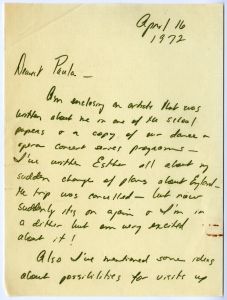 April 16
1972
Dearest Paula –
Am enclosing an article that was
written about me in one of the school
papers & a copy of our dance &
opera concert series programme –
I've written Esther all about my
sudden change of plans about England –
the trip was cancelled – but now
suddenly it's on again & I'm in
a dither but am very excited
about it!
Also I've mentioned some ideas
about possibilities for visits up